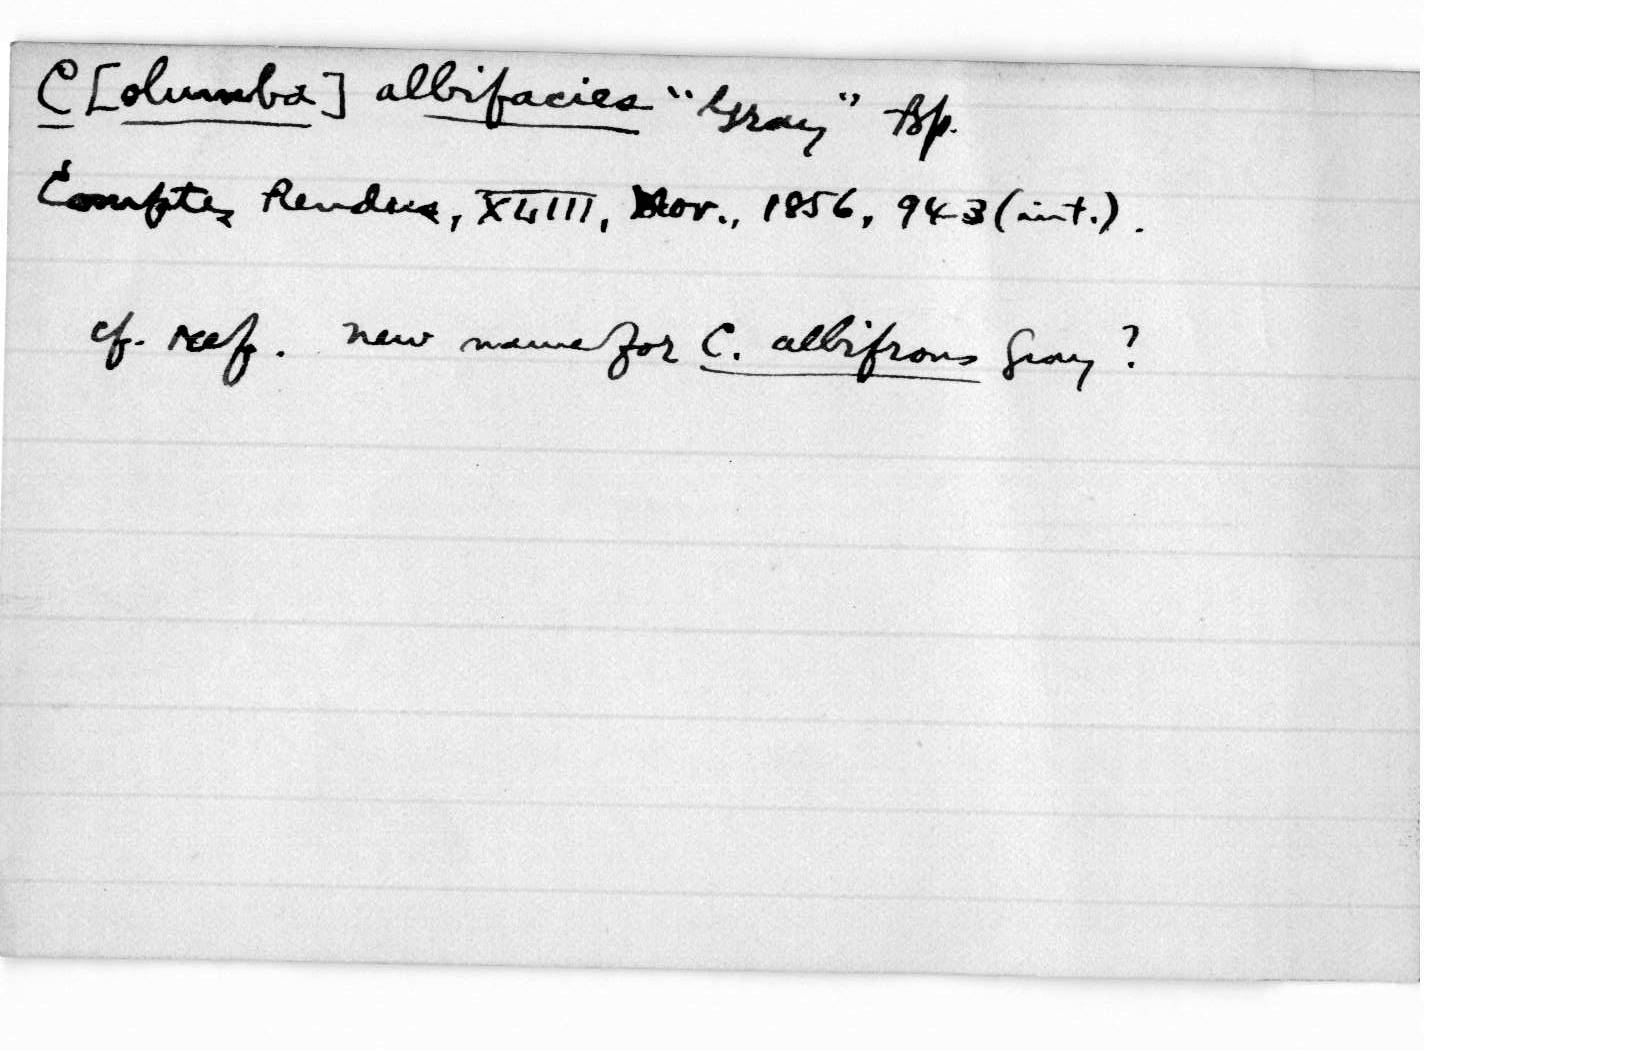 C[olumba] albifacies "Gray" Bp.
Comptes Rendus, XLIII, Nov., 1856, 943 (int.).
cf. new name for C. albifrons Gray?